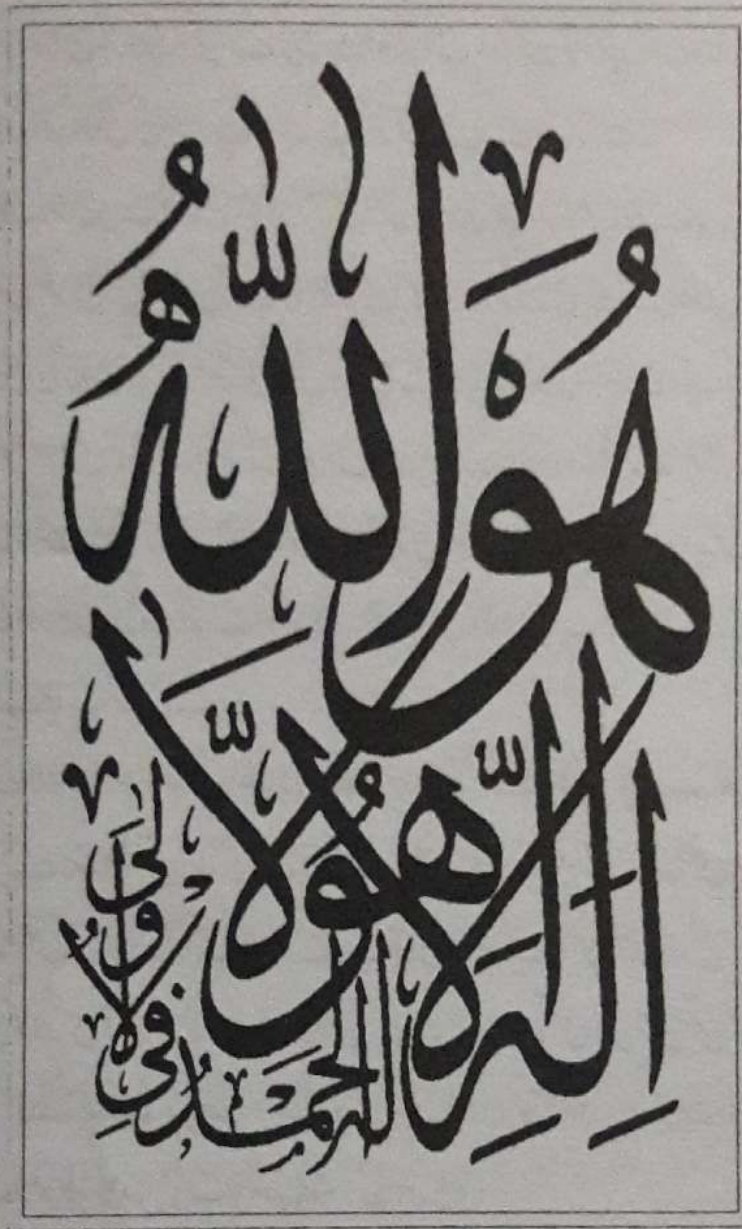 هُوَ اللّٰهُ
لَا اِلٰهَ اِلَّا هُوَ
لَهُ الْحَمْدُ فِي الْاُولٰى